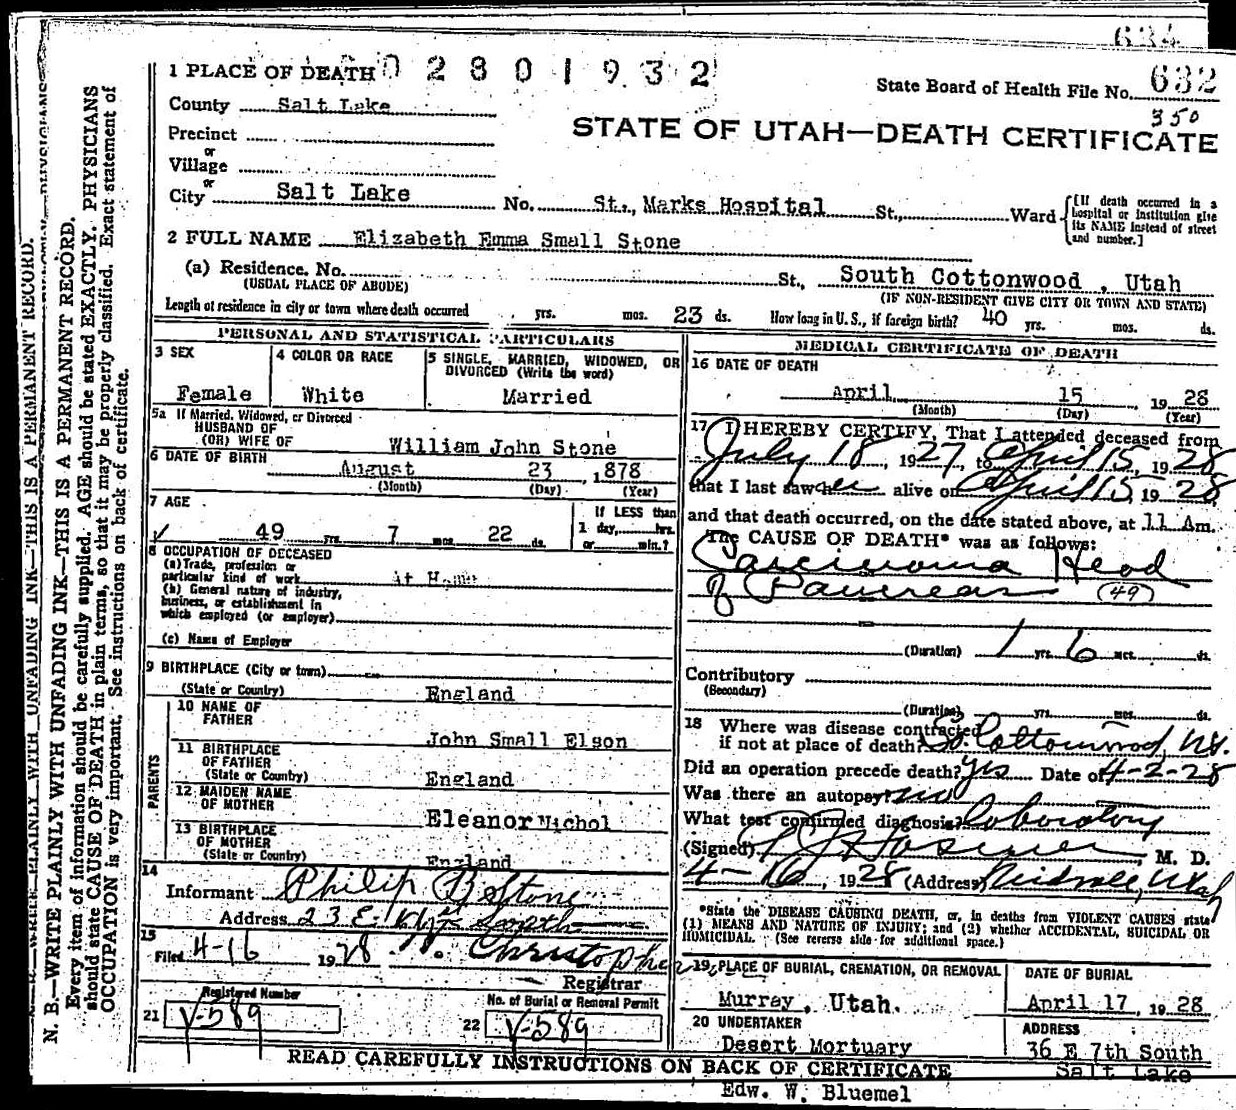 0 2 8 0 1 9 3 2
1 PLACE OF DEATH
State Board of Health File No. 632
350
County Salt Lake
STATE OF UTAH—DEATH CERTIFICATE
Precinct
or
Village
or
City Salt Lake No. St., Marks Hospital St., Ward
[If death occurred in a hospital or institution give its NAME instead of street and number.]
2 FULL NAME Elizabeth Emma Small Stone
(a) Residence. No. St., South Cottonwood , Utah
(USUAL PLACE OF ABODE) (IF NON-RESIDENT GIVE CITY OR TOWN AND STATE)
Length of residence in city or town where death occurred yrs. mos. 23 ds. How long in U. S., if foreign birth? 40 yrs. mos. ds.
PERSONAL AND STATISTICAL PARTICULARS
3 SEX
Female
4 COLOR OR RACE
White
5 SINGLE, MARRIED, WIDOWED, OR DIVORCED (Write the word)
Married
5a If Married, Widowed, or Divorced
HUSBAND OF
(OR) WIFE OF William John Stone
6 DATE OF BIRTH
August 23 ,1878
(Month) (Day) (Year)
7 AGE
49 yrs. 7 mos. 22 ds.
If LESS than
1 day, hrs.
or min.?
8 OCCUPATION OF DECEASED
(a) Trade, profession or
particular kind of work At Home
(b) General nature of industry,
business, or establishment in
which employed (or employer)
(c) Name of Employer
9 BIRTHPLACE (City or town)
(State or Country) England
PARENTS
10 NAME OF
FATHER John Small Elson
11 BIRTHPLACE
OF FATHER
(State or Country) England
12 MAIDEN NAME
OF MOTHER Eleanor Nichol
13 BIRTHPLACE
OF MOTHER
(State or Country) England
14
Informant Philip B Stone
Address 23 E South
15
Filed 4-16 1928 Christopher
Registrar
Registered Number
21 V-589
No. of Burial or Removal Permit
22 V-589
MEDICAL CERTIFICATE OF DEATH
16 DATE OF DEATH
April 15 , 19 28
(Month) (Day) (Year)
17 I HEREBY CERTIFY, That I attended deceased from
July 18, 1927, to April 15, 1928
that I last saw her alive on April 15 1928,
and that death occurred, on the date stated above, at 11 Am.
The CAUSE OF DEATH* was as follows:
Carcinoma Head
of Pancreas (49)
(Duration) 1 yrs. 6 mos. ds.
Contributory
(Secondary)
(Duration) yrs. mos. ds.
18 Where was disease contracted
if not at place of death? So. Cottonwood, Ut.
Did an operation precede death? yes Date of 4-2-28
Was there an autopsy? no
What test confirmed diagnosis? Laboratory
(Signed) M. D.
4-16, 1928 (Address) Midvale, Utah
*State the DISEASE CAUSING DEATH, or, in deaths from VIOLENT CAUSES state
(1) MEANS AND NATURE OF INJURY; and (2) whether ACCIDENTAL, SUICIDAL OR
HOMICIDAL. (See reverse side for additional space.)
19 PLACE OF BURIAL, CREMATION, OR REMOVAL
Murray, Utah.
DATE OF BURIAL
April 17 , 19 28
20 UNDERTAKER
Desert Mortuary
ADDRESS
36 E 7th South
Salt Lake
READ CAREFULLY INSTRUCTIONS ON BACK OF CERTIFICATE
Edw. W. Bluemel
N. B.—WRITE PLAINLY WITH UNFADING INK—THIS IS A PERMANENT RECORD.
Every item of information should be carefully supplied. AGE should be stated EXACTLY. PHYSICIANS
should state CAUSE OF DEATH in plain terms, so that it may be properly classified. Exact statement of
OCCUPATION is very important. See instructions on back of certificate.